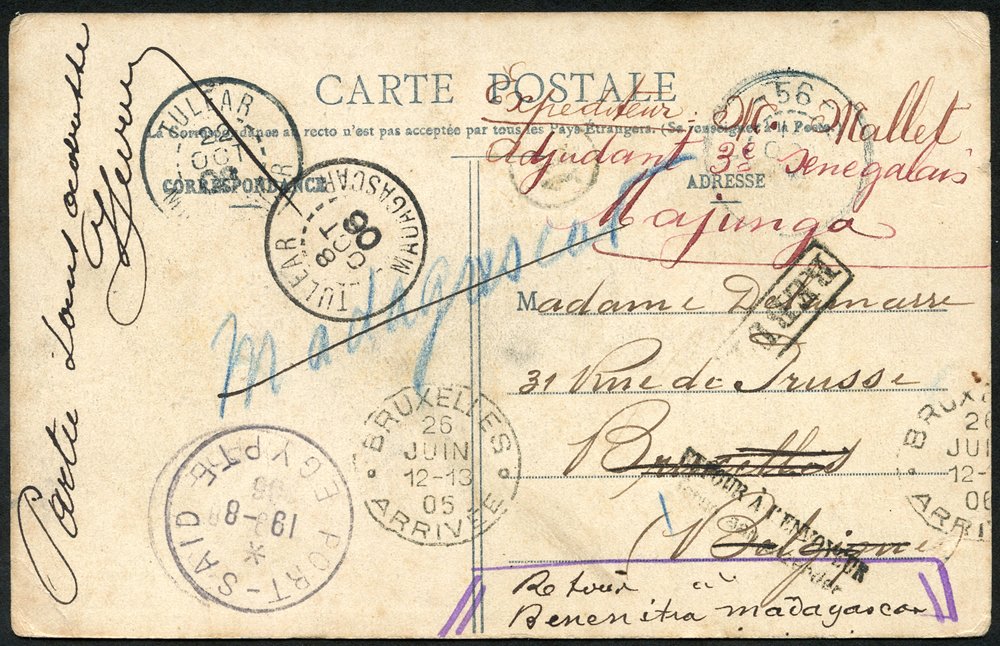 CARTE POSTALE
La Correspondance au recto n'est pas acceptée par tous les Pays Étrangers. (Se renseigner à la Poste
CORRESPONDANCE
ADRESSE
Expéditeur: M. Mallet
adjudant 3e Senegalais
Majunga
TULEAR
22
OCT
TULEAR
MADAGASCAR
8
OCT
06
56
Madagascar
REBUT
Madame Delamarre
31 Rue de Prusse
Bruxelles
Belgique
BRUXELLES
26
JUIN
12-13
06
ARRIVÉE
BRUX
26
JUI
12-1
06
ARRI
PORT-SAID
EGYPTE
RETOUR À L'ENVOYEUR
Retour à
Benenitra madagascar
Partie sans adresse